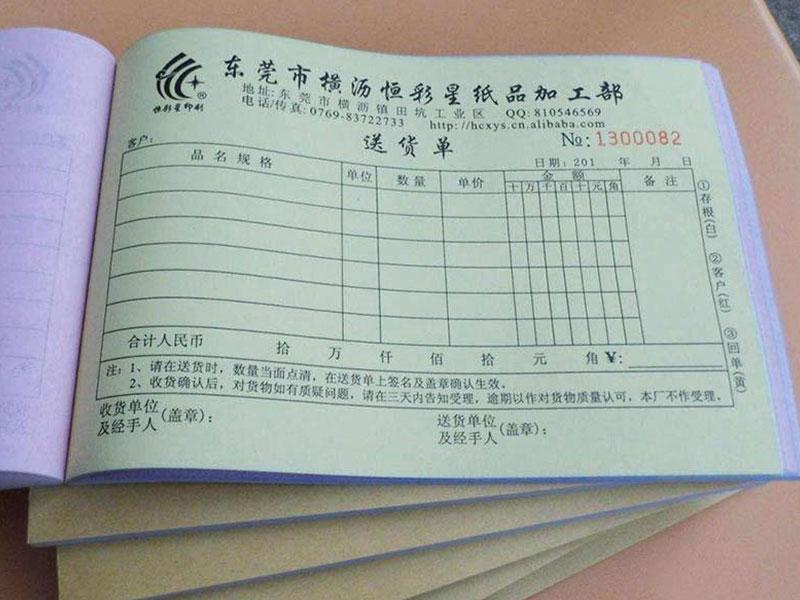 东莞市横沥恒彩星纸品加工部
恒彩星印刷®
地址:东莞市横沥镇田坑工业区 QQ:810546569
电话/传真:0769-83722733 http://hcxys.cn.alibaba.com
送货单
№:1300082
客户:
日期:201 年 月 日
品名规格 单位 数量 单价 金额 备注
十 万 千 百 十 元 角
合计人民币 拾 万 仟 佰 拾 元 角 ¥:
注:1、请在送货时,数量当面点清,在送货单上签名及盖章确认生效。
2、收货确认后,对货物如有质疑问题,请在三天内告知受理,逾期以作对货物质量认可,本厂不作受理。
收货单位
及经手人(盖章):
送货单位
及经手人(盖章):
①存根(白) ②客户(红) ③回单(黄)